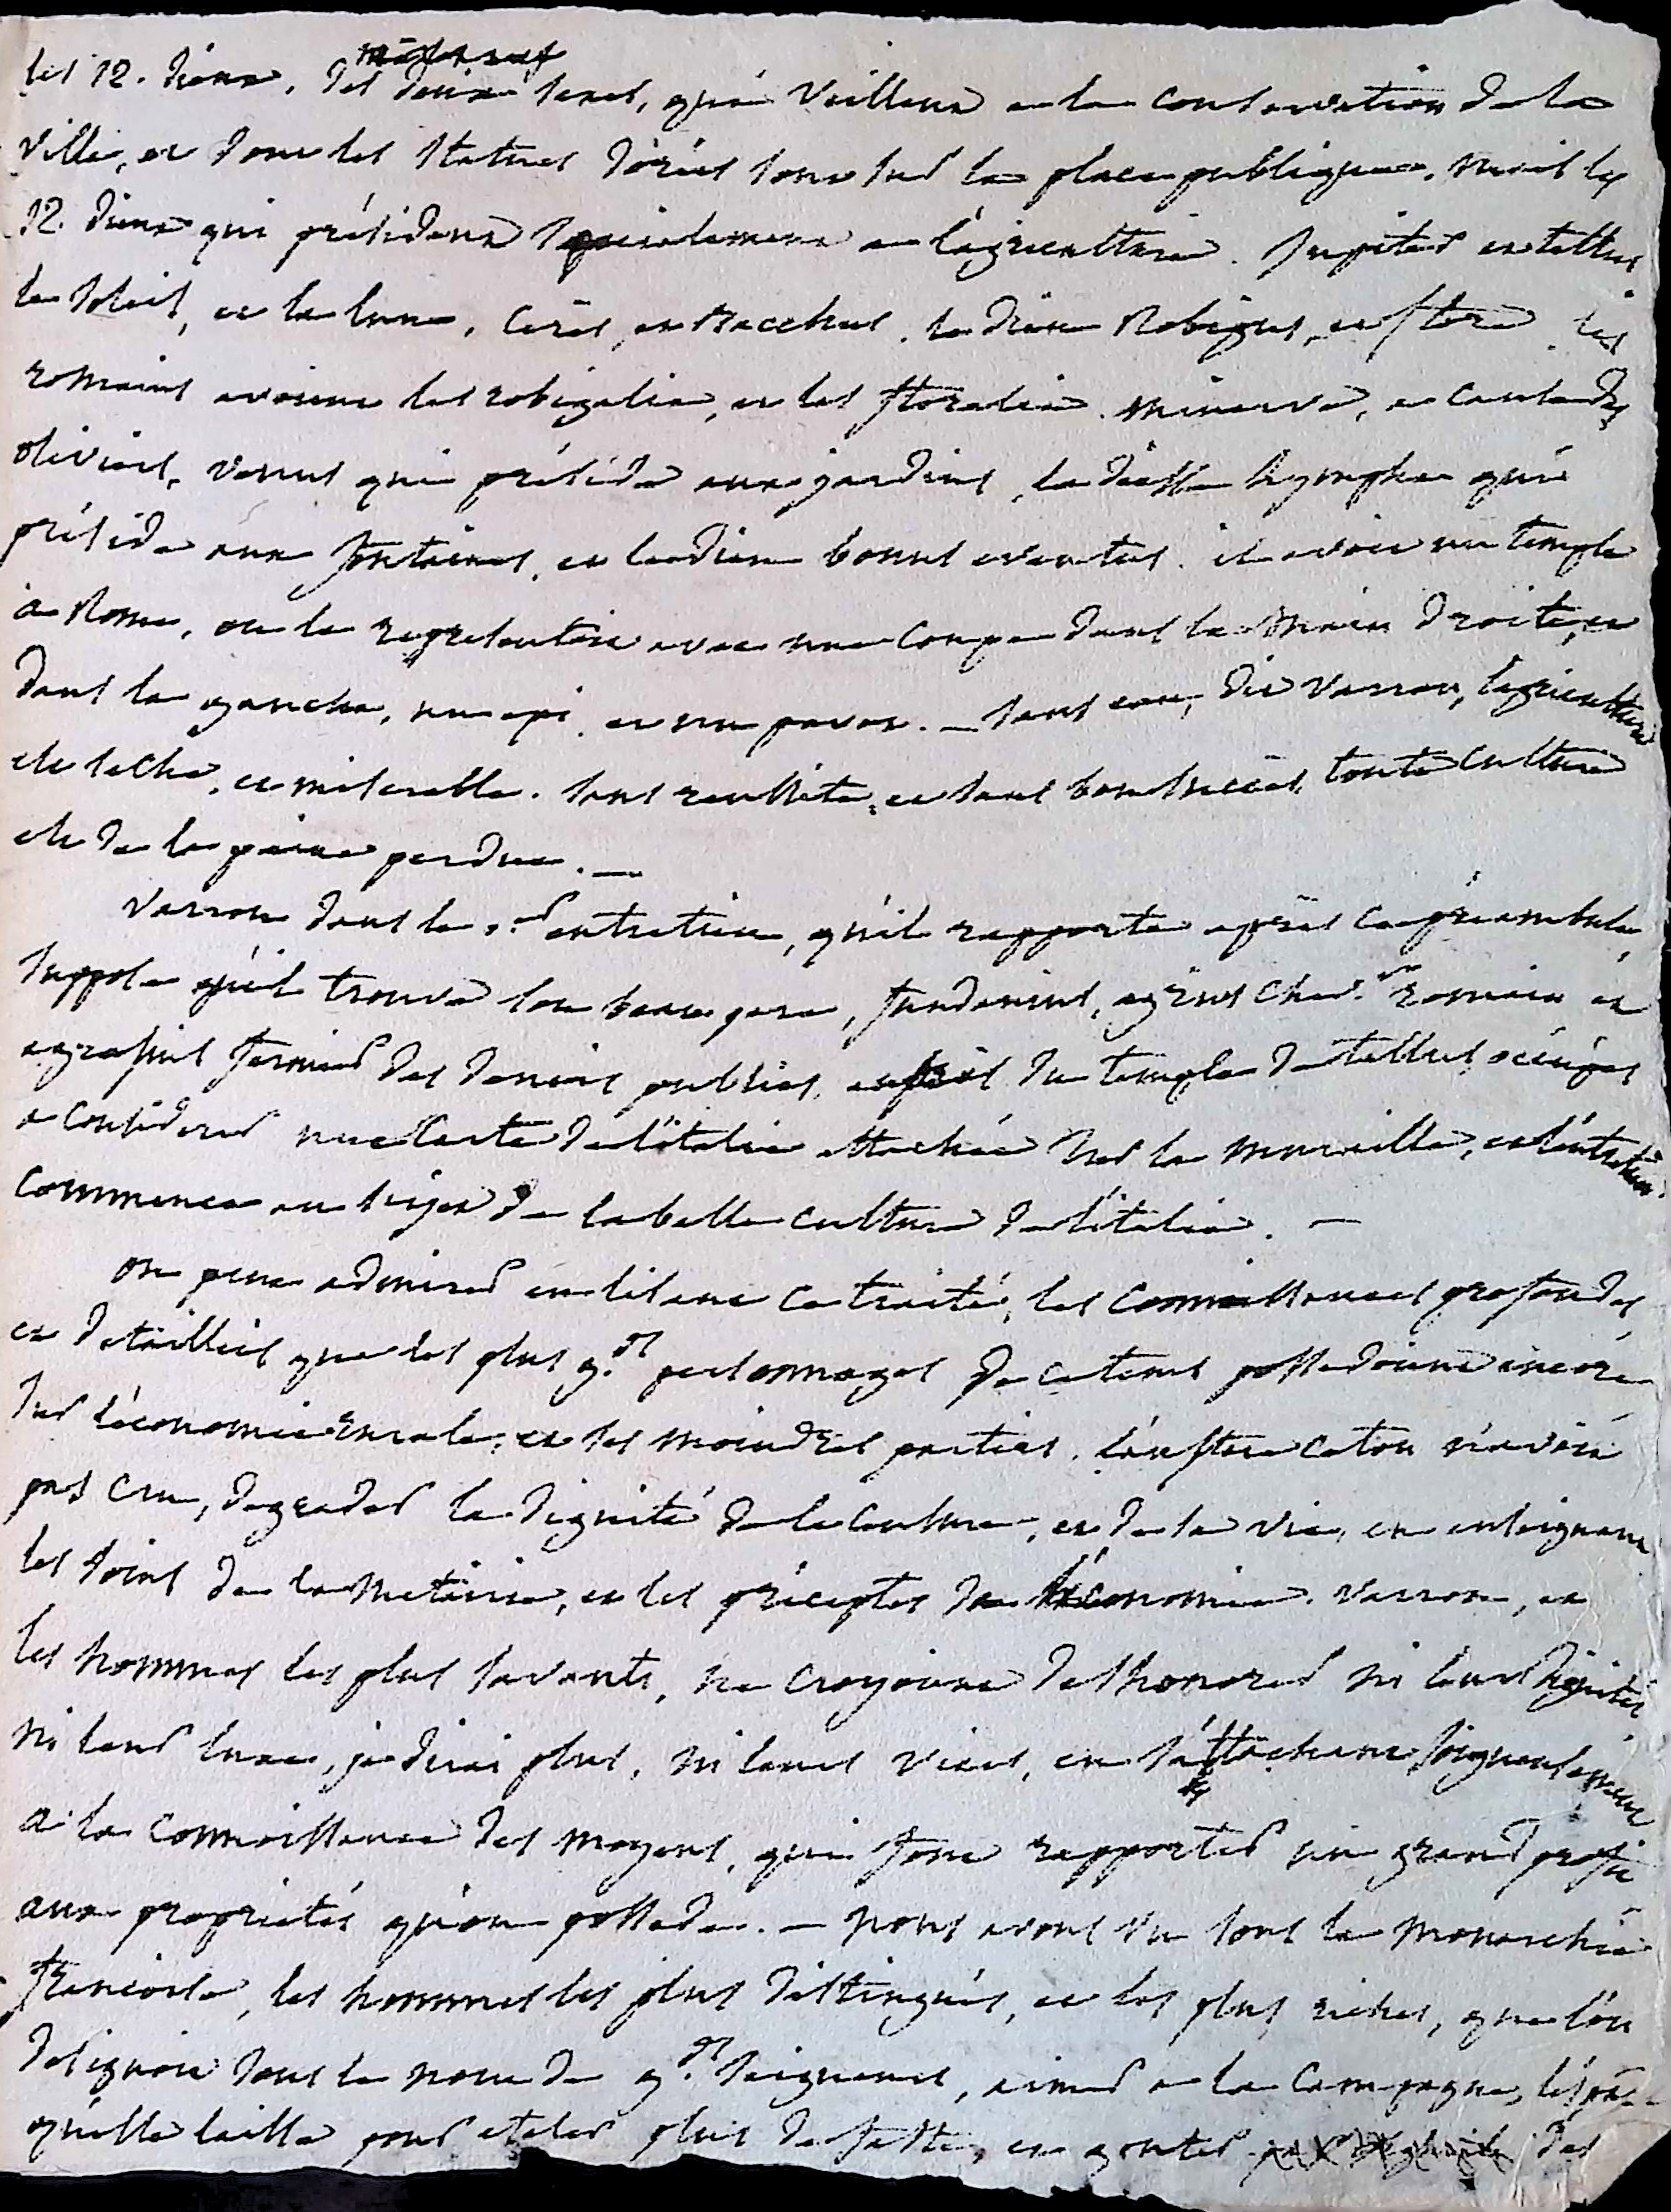 les 12. dieux, des deux sexes, qui veillent a la conservation de la
ville, et dont les statues dorées sont sur la place publique. mais les
12. dieux qui président spécialement a l'agriculture. Jupiter et tellus
le soleil, et la lune, Cerès, et Bacchus, le dieu Robigus, et flore les
romains avoient les robigalia, et les floralia. minerve, a cause des
oliviers, venus qui préside aux jardins, la déesse lymphe qui
préside aux fontaines, et le dieu bonus eventus. il avoit un temple
a Rome, ou le représentoit avec une coupe dans la main droite, et
dans la gauche, un épi et un pavot. — sans eau, dit varron, l'agriculture
est seche, et miserable. sans reussite, et sans bon succès, toute culture
est de la peine perdue. —
varron dans le 1er entretien, qu'il rapporte après ce préambule,
suppose qu'il trouve son beau pere, fundanius, agrius cher. romain et
agrasius fermier des deniers publics, auprès du temple de tellus, occupés
a considerer une carte de l'italie attachée sur la muraille, et l'entretien
commence au sujet de la belle culture de l'italie. —
on peut admirer en lisant ce traité, les connoissances profondes,
et detaillées que les plus gds personnages de ce tems possedoient encore
sur l'économie rurale, et ses moindres parties. l'austere caton n'avoit
pas cru, degrader la dignité de la censure, et de sa vie, en enseignant
les soins de la métairie, et les préceptes de l'économie. varron, et
les hommes les plus savants, ne croyoient deshonorer ni leurs dignités
ni leur luxe, je dirai plus, ni leurs vices, en s'attachant soigneusement
a la connoissance des moyens, qui font rapporter un grand profit
aux propriétés qu'on possede. — nous avons vu sous la monarchie
françoise, les hommes les plus distingués, et les plus riches, que l'on
designoit sous le nom de gds seigneurs, aimer a la campagne,
qu'elle laisse pour etaler plus de faste, et gouter des